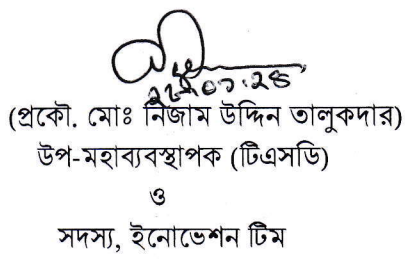 (প্রকৌ. মোঃ নিজাম উদ্দিন তালুকদার)
উপ-মহাব্যবস্থাপক (টিএসডি)
ও
সদস্য, ইনোভেশন টিম